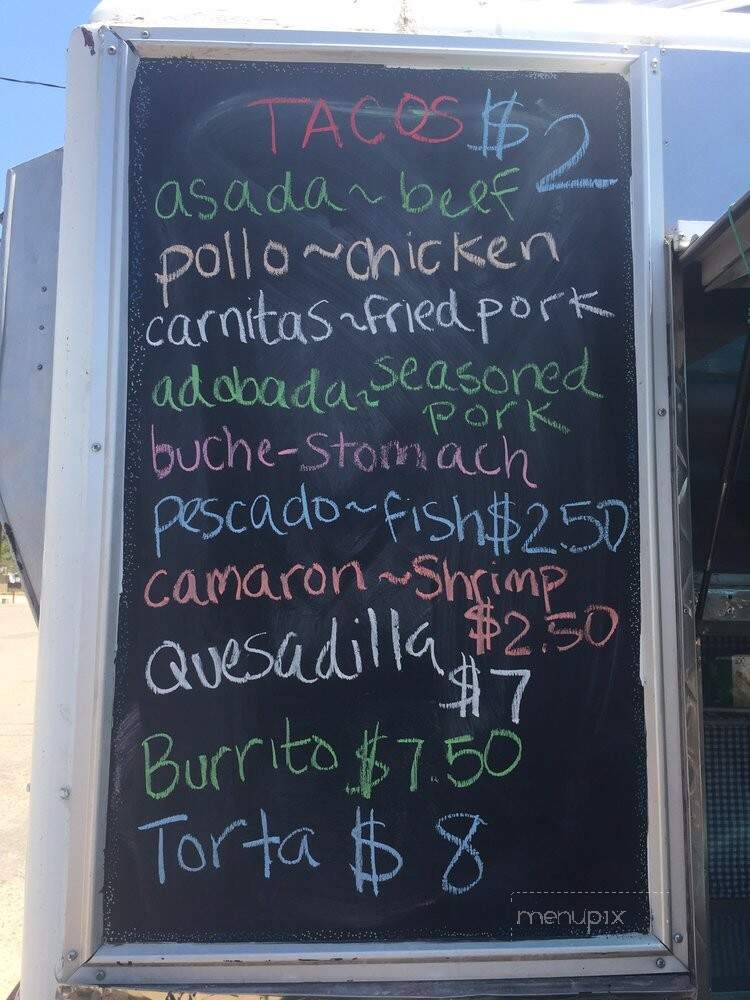 TACOS $2
asada~beef
pollo~chicken
carnitas~fried pork
adobada~seasoned
pork
buche-Stomach
pescado~fish $2.50
camaron~Shrimp
$2.50
Quesadilla
$7
Burrito $7.50
Torta $8
menupix